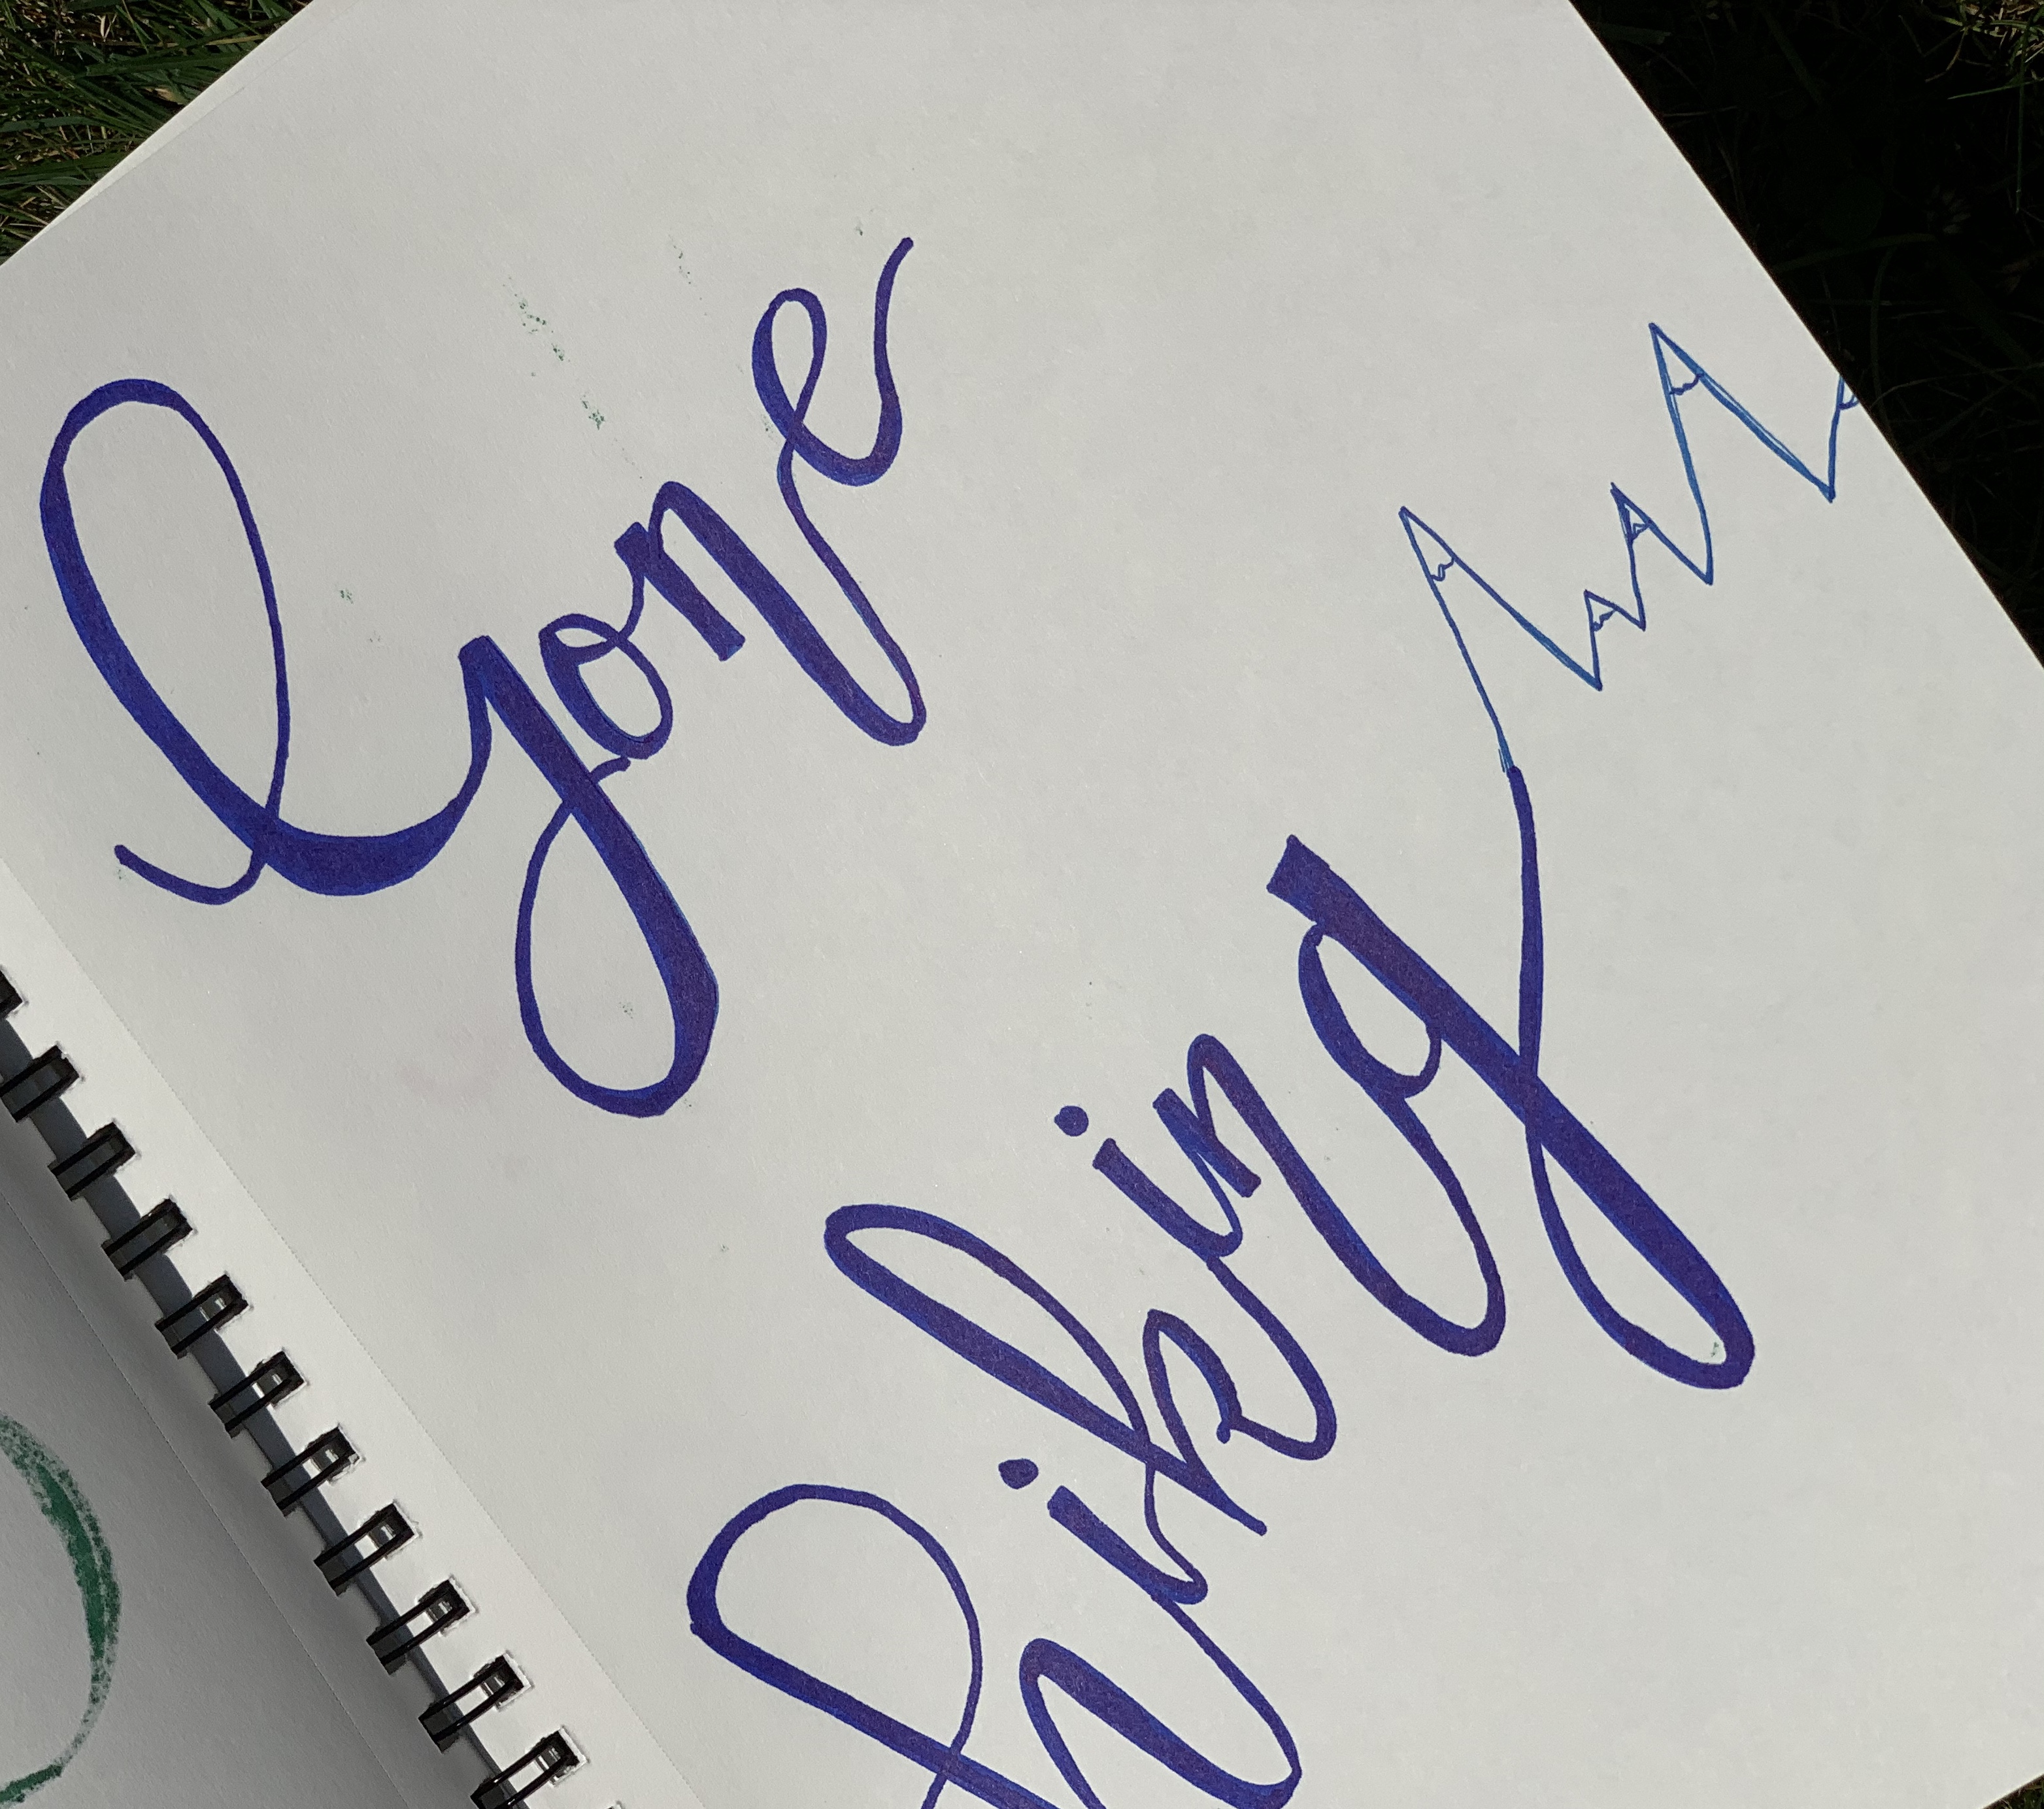 Gone
hiking